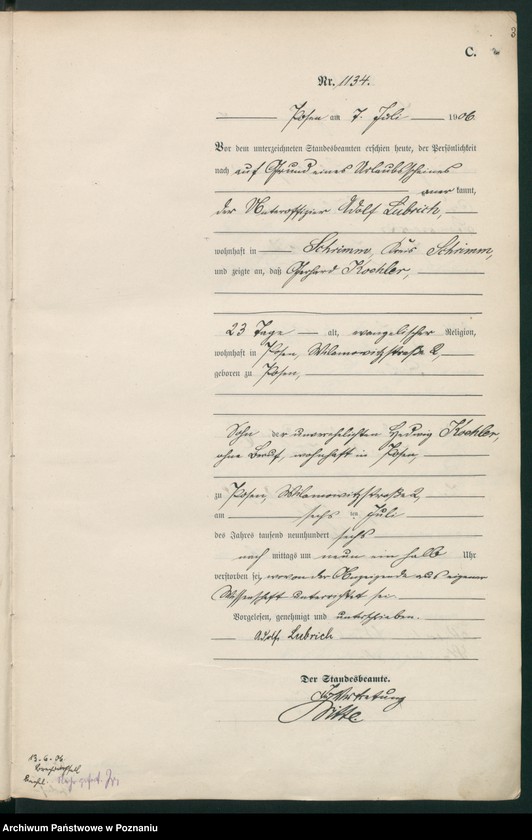 C.
Nr. 1134.
Posen am 7. Juli 1906.
Vor dem unterzeichneten Standesbeamten erschien heute, der Persönlichkeit
nach auf Grund eines Urlaubsscheines
anerkannt,
der Unteroffizier Adolf Lubrich,
wohnhaft in Schrimm, Kreis Schrimm,
und zeigte an, daß Gerhard Koehler,
23 Tage alt, evangelischer Religion,
wohnhaft in Posen, Wilamowitzstraße 2,
geboren zu Posen,
Sohn der unverehelichten Hedwig Koehler,
ohne Beruf, wohnhaft in Posen,
zu Posen, Wilamowitzstraße 2,
am sechsten Juli
des Jahres tausend neunhundert sechs
nach mittags um neun ein halb Uhr
verstorben sei, wovon der Anzeigende aus eigener
Wissenschaft unterrichtet sei.
Vorgelesen, genehmigt und unterschrieben.
Adolf Lubrich
Der Standesbeamte.
In Vertretung
13. 6. 06.
Archiwum Państwowe w Poznaniu